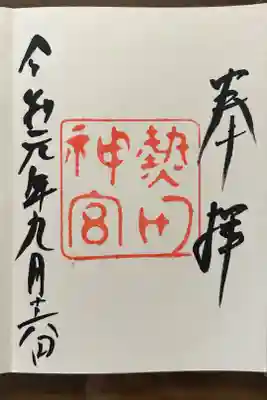 奉拝
熱田
神宮
令和元年九月十六日